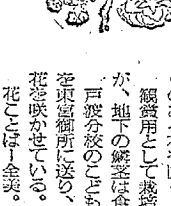 観賞用として栽培
が、地下の鱗茎は食
戸波分校のこども
を東宮御所に送り、
花を咲かせている。
花ことば―全美。